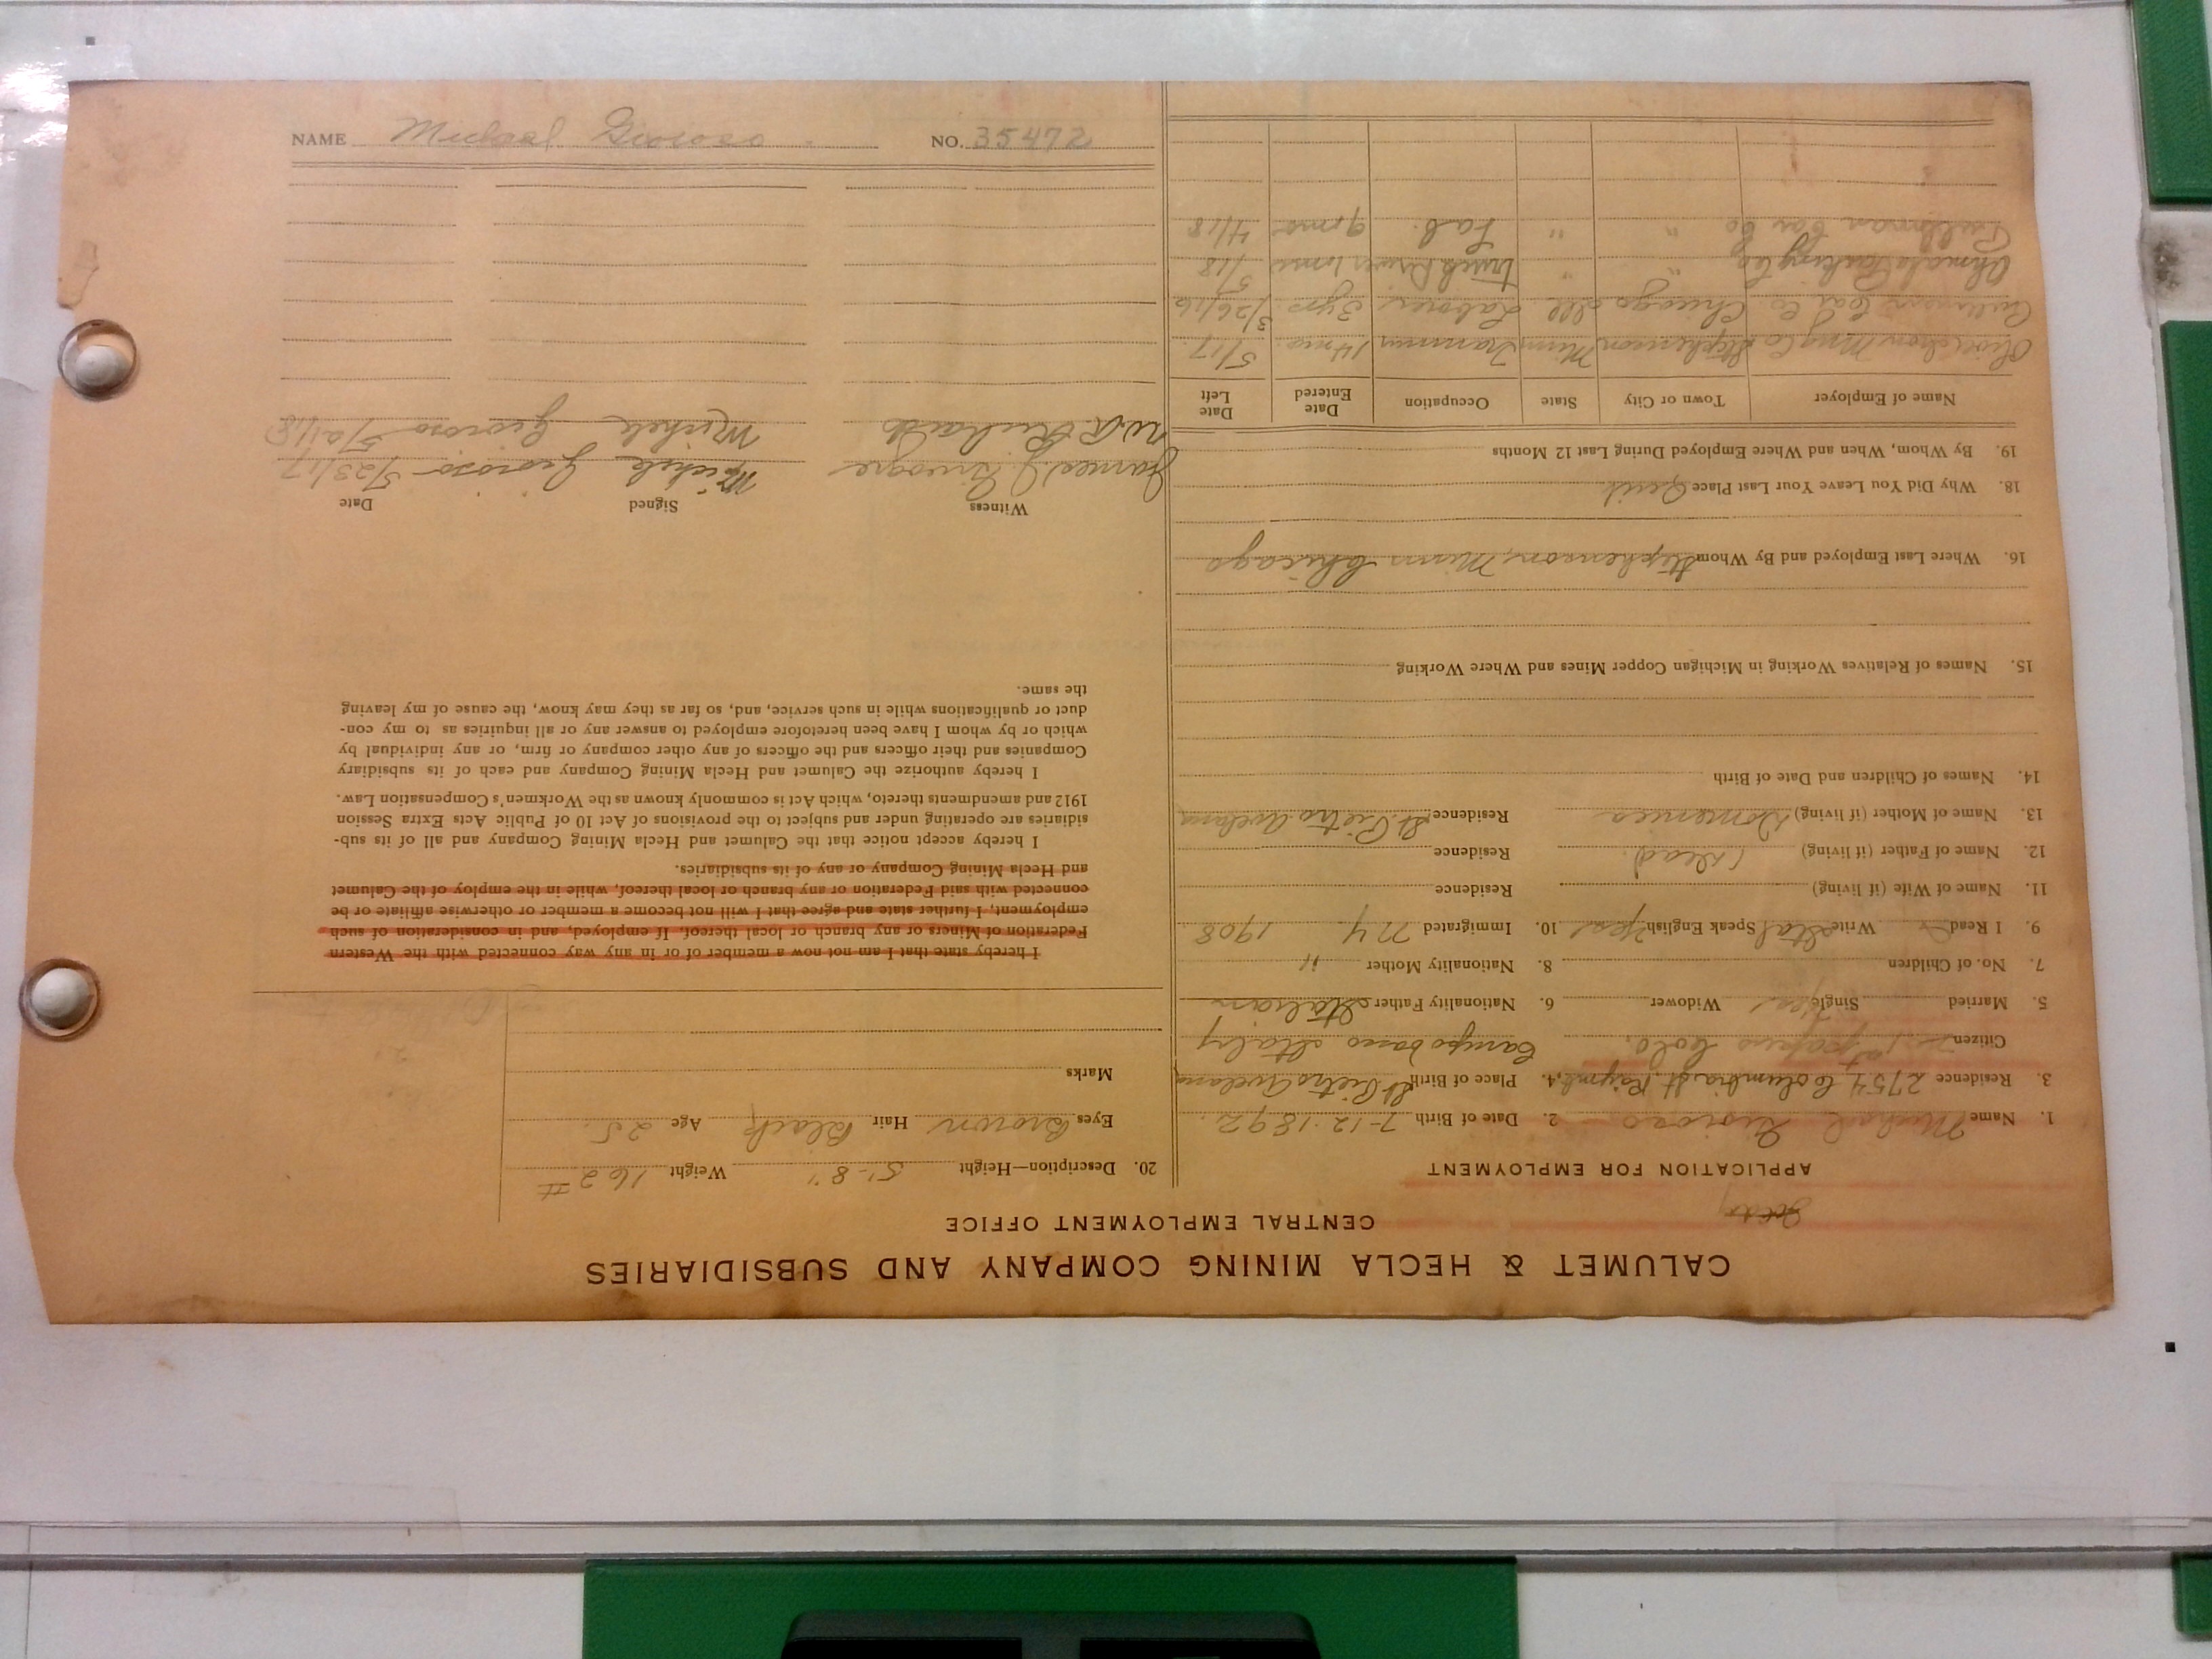 NAME Michael Gioioso NO. 35472
CALUMET & HECLA MINING COMPANY AND SUBSIDIARIES
CENTRAL EMPLOYMENT OFFICE
APPLICATION FOR EMPLOYMENT
1. Name Michael Gioioso 2. Date of Birth 7-12-1892.
3. Residence 2754 Columbia St. 4. Place of Birth St Pietro Avelana
Citizen 1st papers Colo. Campobasso Italy
5. Married Single Yes Widower 6. Nationality Father Italian
7. No. of Children 8. Nationality Mother "
9. I Read Write Ital Speak English Yes 10. Immigrated N Y 1908
11. Name of Wife (if living) Residence
12. Name of Father (if living) (Dead) Residence
13. Name of Mother (if living) Domenica Residence St. Pietro Avelana
14. Names of Children and Date of Birth
15. Names of Relatives Working in Michigan Copper Mines and Where Working
16. Where Last Employed and By Whom Stephenson, Minn Chicago
18. Why Did You Leave Your Last Place Quit
19. By Whom, When and Where Employed During Last 12 Months
Name of Employer Town or City State Occupation Date Entered Date Left
Mng Co Stephenson Minn Trammer 14 mo. 5/17
Pullman Car Co Chicago Ill Laborer 3 yrs 3/26/16
Packing Co " " Truck Driver 1 mo 5/18
Pullman Car Co " " Lab. 9 mo 4/18
20. Description—Height 5'-8" Weight 162 #
Eyes Brown Hair Black Age 25.
Marks
I hereby state that I am not now a member of or in any way connected with the Western
Federation of Miners or any branch or local thereof. If employed, and in consideration of such
employment, I further state and agree that I will not become a member or otherwise affiliate or be
connected with said Federation or any branch or local thereof, while in the employ of the Calumet
and Hecla Mining Company or any of its subsidiaries.
I hereby accept notice that the Calumet and Hecla Mining Company and all of its sub-
sidiaries are operating under and subject to the provisions of Act 10 of Public Acts Extra Session
1912 and amendments thereto, which Act is commonly known as the Workmen's Compensation Law.
I hereby authorize the Calumet and Hecla Mining Company and each of its subsidiary
Companies and their officers and the officers of any other company or firm, or any individual by
which or by whom I have been heretofore employed to answer any or all inquiries as to my con-
duct or qualifications while in such service, and, so far as they may know, the cause of my leaving
the same.
Witness Signed Date
James J. Michele Gioioso 5/23/17
W.R. Richards Michele Gioioso 5/21/18